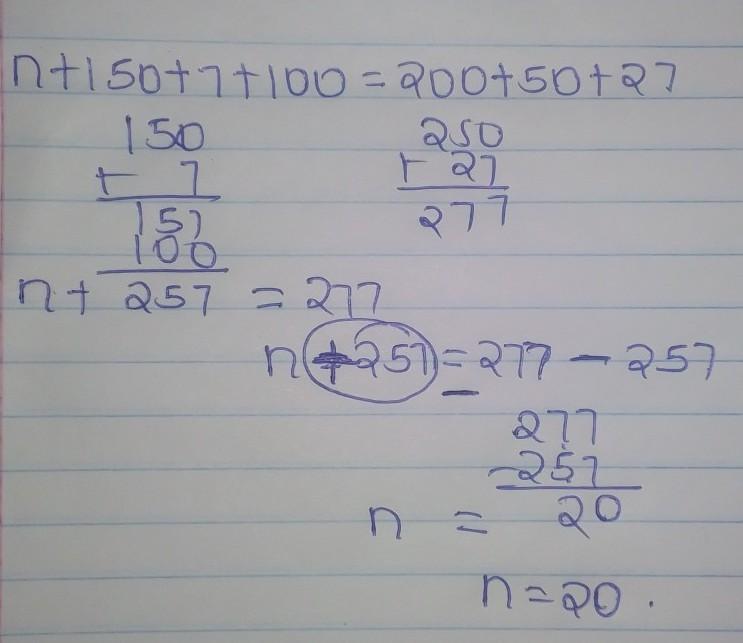 n+150+7+100=200+50+27
150 250
+ 7 + 27
157 277
100
n+ 257 = 277
n +257 = 277 - 257
277
-257
n = 20
n=20.